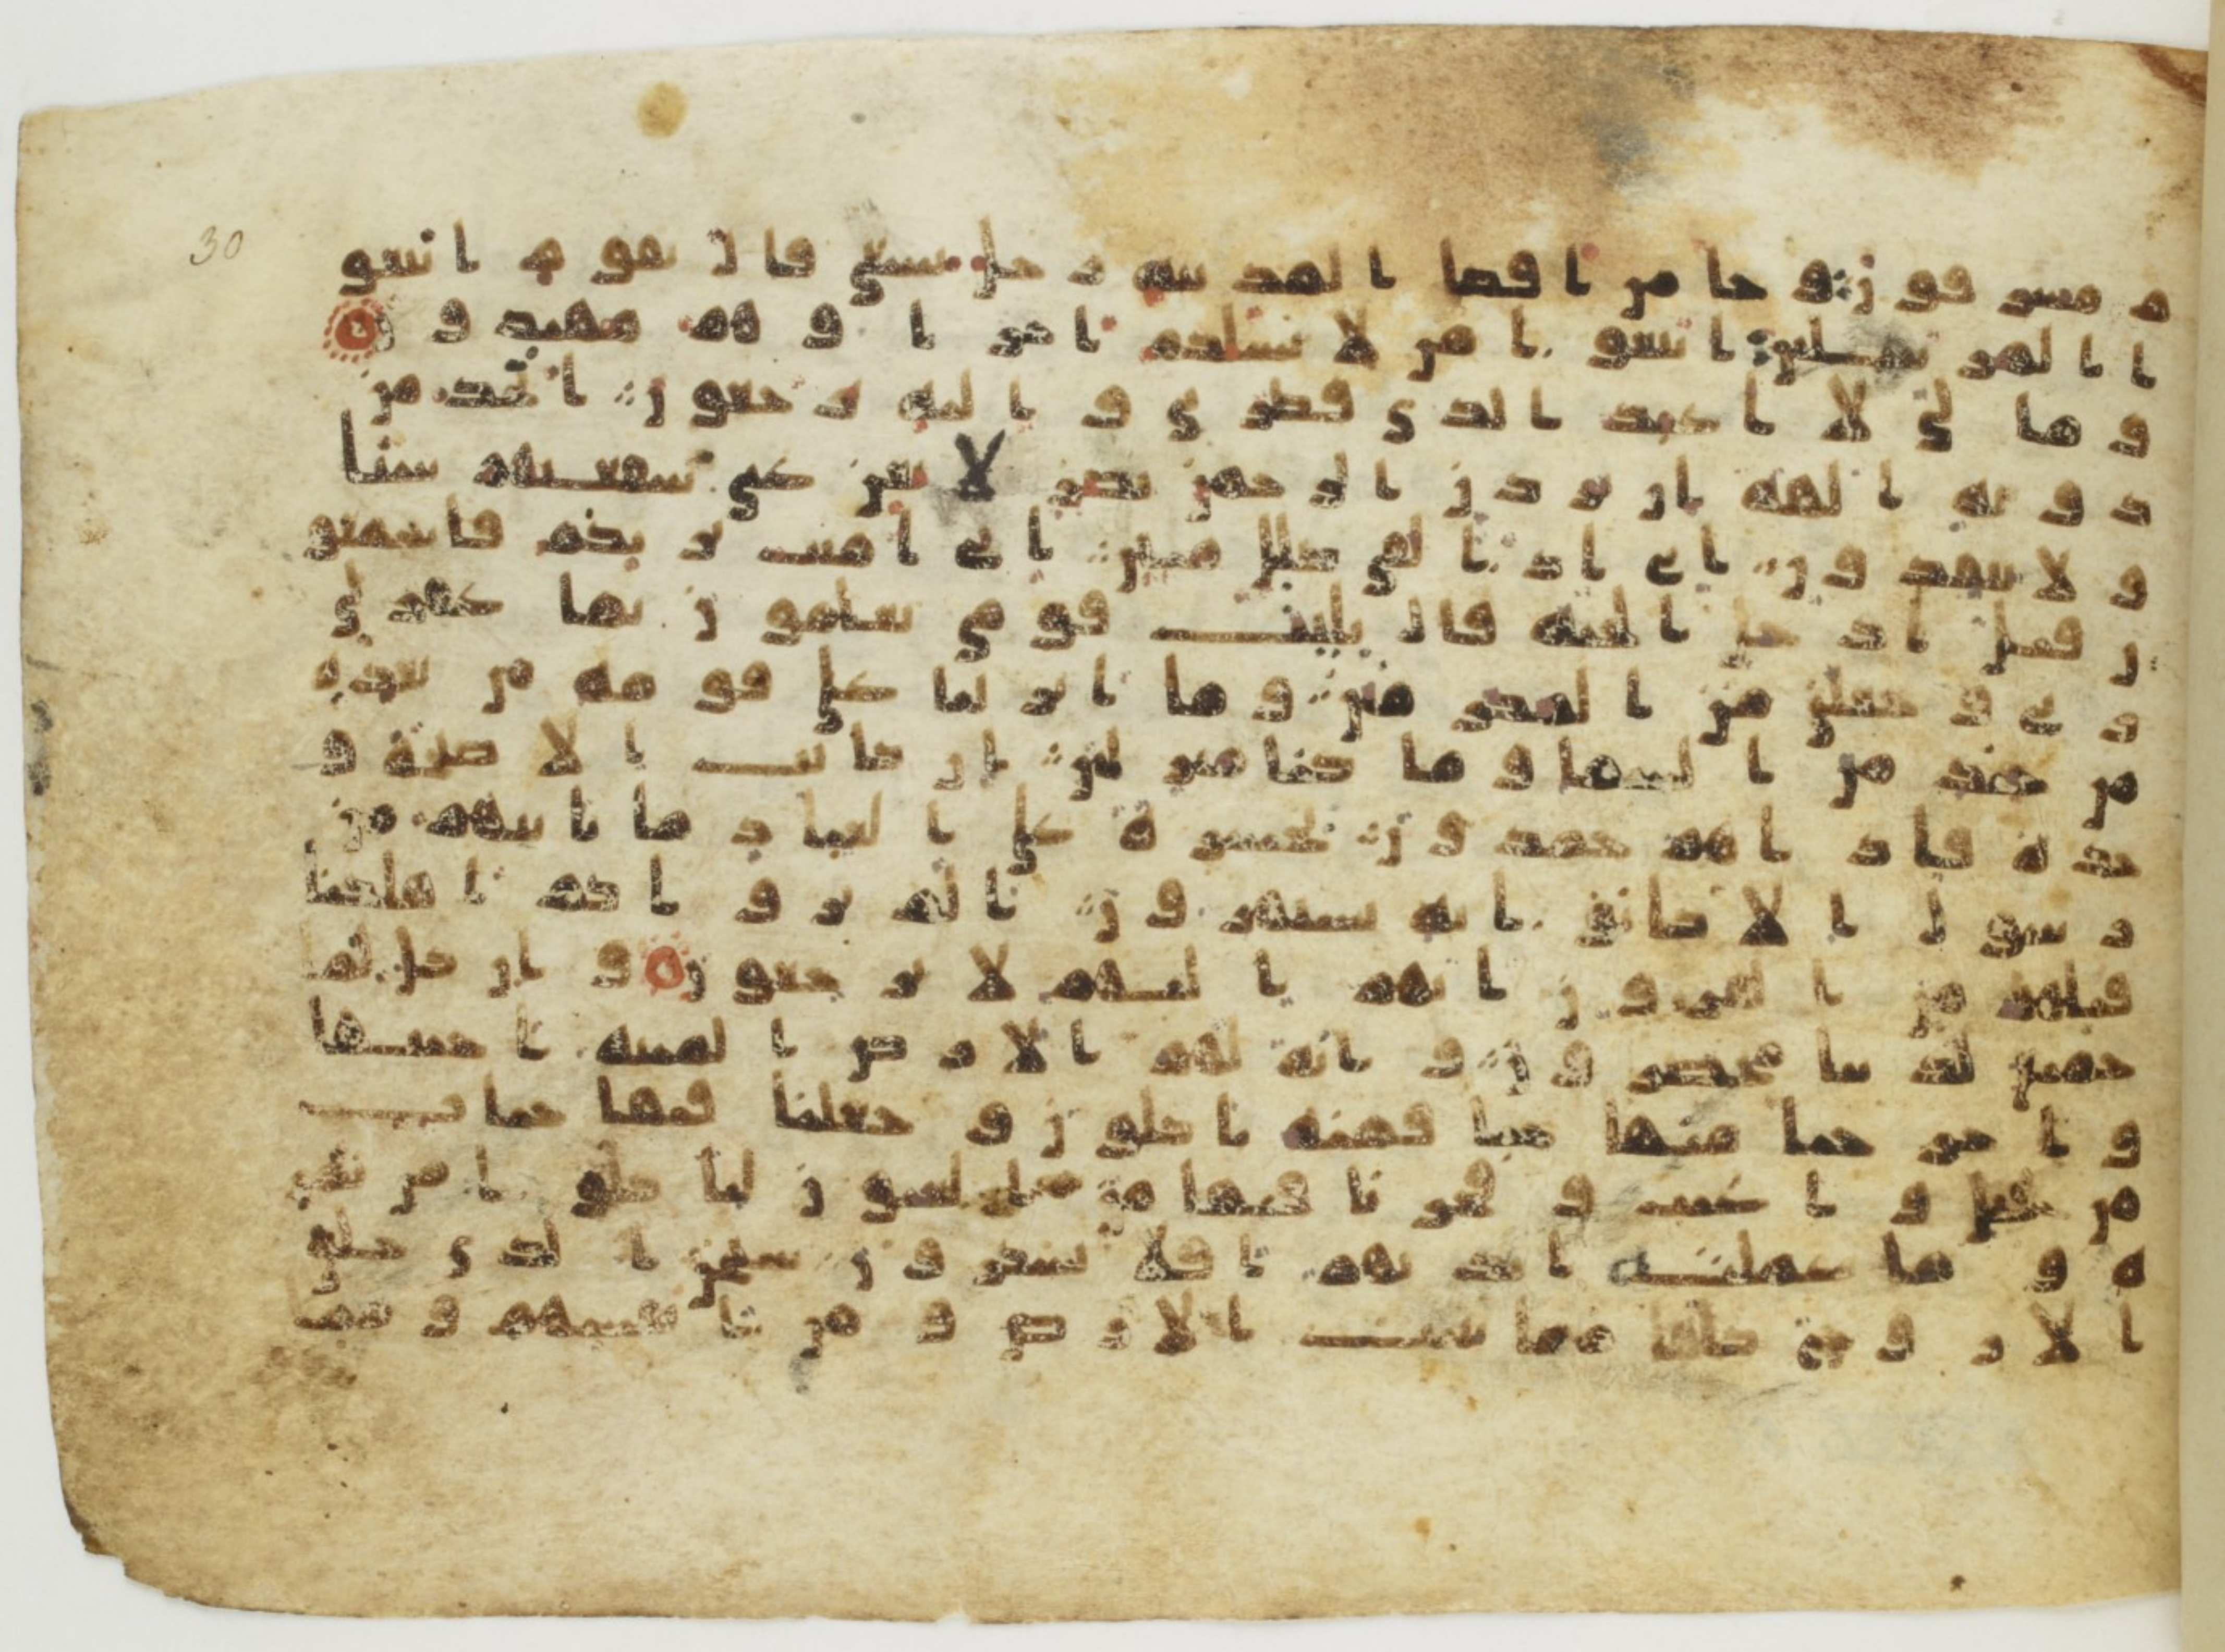 م مسرفون وجا من اقصا المدينه رجل يسعى قال يقوم اتبعو
ا المرسلين اتبعوا من لا يسلكم اجرا وهم مهتدون
وما لي لا اعبد الذي فطرني واليه ترجعون اتخذ من
دونه الهه ان يردن الرحمن بضر لا تغن عني شفعتهم شيا
ولا ينقذون اني اذا لفي ضلل مبين اني امنت بربكم فاسمعو
ن قيل ادخل الجنه قال يليت قومي يعلمون بما غفر لي
ربي وجعلني من المكرمين وما انزلنا على قومه من بعده
من جند من السما وما كنا منزلين ان كانت الا صيحة و
حدة فاذا هم خمدون يحسرة على العباد ما ياتيهم من
رسول الا كانوا به يستهزون الم يروا كم اهلكنا
قبلهم من القرون انهم اليهم لا يرجعون وان كل لما
جميع لدينا محضرون وايه لهم الارض الميته احيينها
واخرجنا منها حبا فمنه ياكلون وجعلنا فيها جنات
من نخيل واعنب وفجرنا فيها من العيون لياكلوا من ثمر
ه وما عملته ايديهم افلا يشكرون سبحن الذي خلق
الازوج كلها مما تنبت الارض ومن انفسهم ومما
30